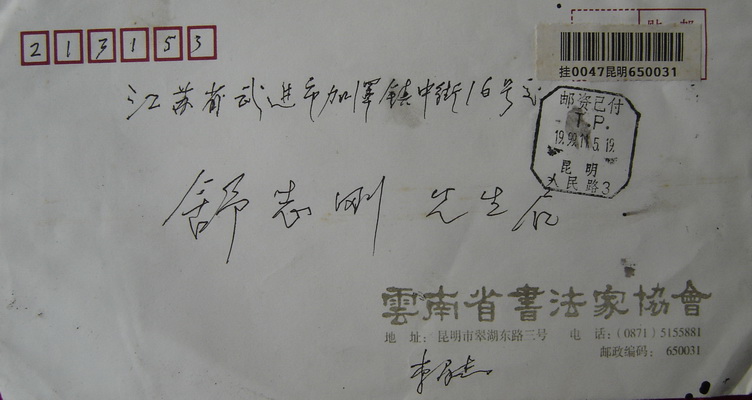 213153
贴 邮
挂0047昆明650031
江苏省武进市加泽镇中街16号
邮资已付
T.P.
昆 明
人民路3
舒志刚 先生启
雲南省書法家協會
地 址: 昆明市翠湖东路三号 电 话:(0871)5155881
邮政编码: 650031